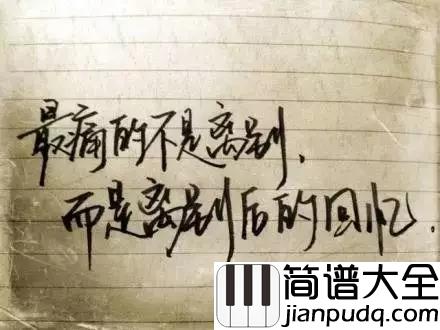 最痛的不是离别,
而是离别后的回忆.
简谱大全
jianpudq.com